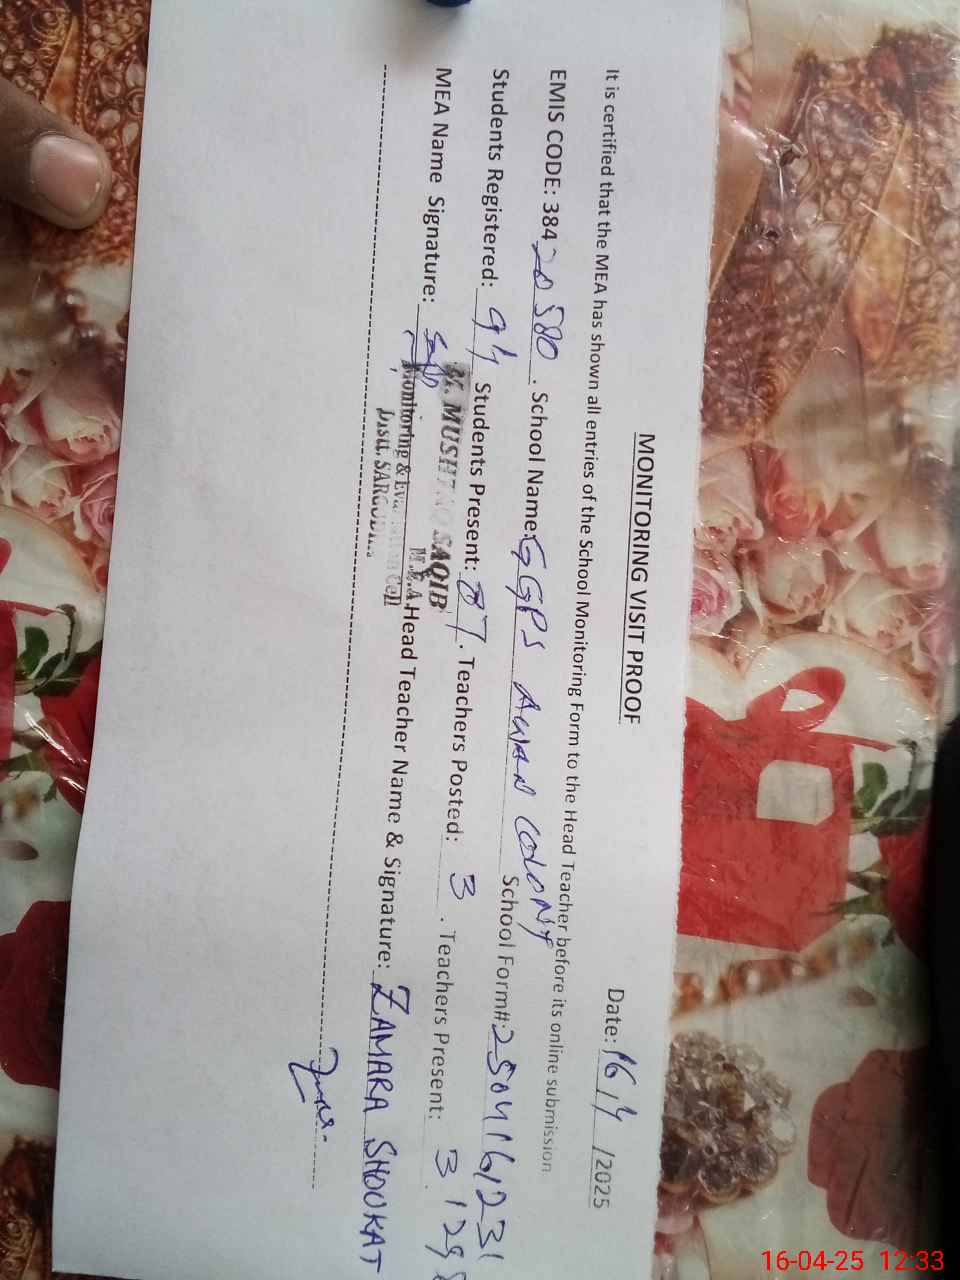 MONITORING VISIT PROOF
Date: 16/4/2025
It is certified that the MEA has shown all entries of the School Monitoring Form to the Head Teacher before its online submission.
EMIS CODE: 38420580. School Name: GGPS AWAN COLONY School Form#: 2504161231
Students Registered: 94 Students Present: 87. Teachers Posted: 3. Teachers Present: 3
MEA Name Signature: Head Teacher Name & Signature: ZAMARA SHOUKAT
MUSHTAQ SAQIB
M.E.A
Monitoring & Evaluation Cell
Distt. SARGODHA
16-04-25 12:33